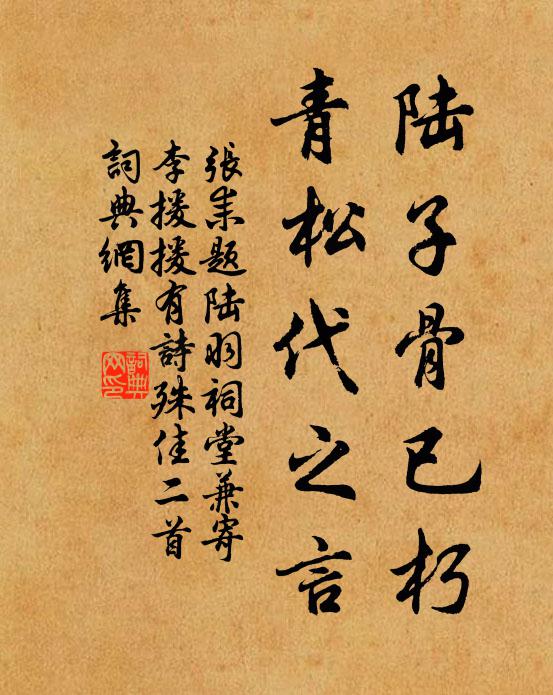 陆子骨已朽
青松代之言
張耒题陆羽祠堂兼寄
李援援有詩殊佳二首
詞典網集
詞典網印